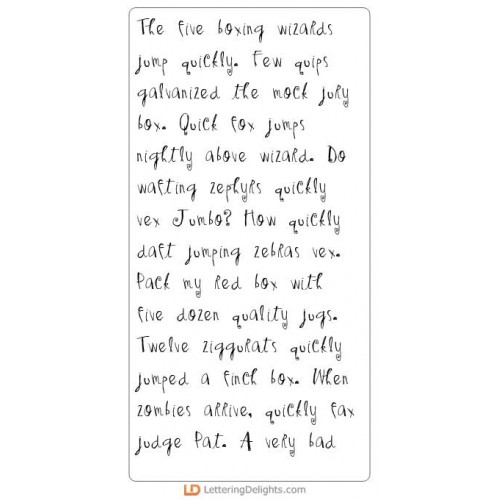 The five boxing wizards
jump quickly. Few quips
galvanized the mock jury
box. Quick fox jumps
nightly above wizard. Do
wafting zephyrs quickly
vex Jumbo? How quickly
daft jumping zebras vex.
Pack my red box with
five dozen quality jugs.
Twelve ziggurats quickly
jumped a finch box. When
zombies arrive, quickly fax
judge Pat. A very bad
LD LetteringDelights.com